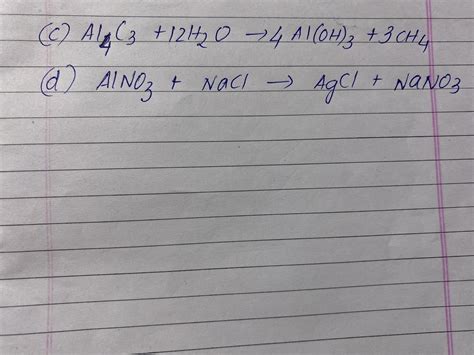 (c) Al4C3 + 12H2O → 4 Al(OH)3 + 3CH4
(d) AlNO3 + NaCl → AgCl + NaNO3